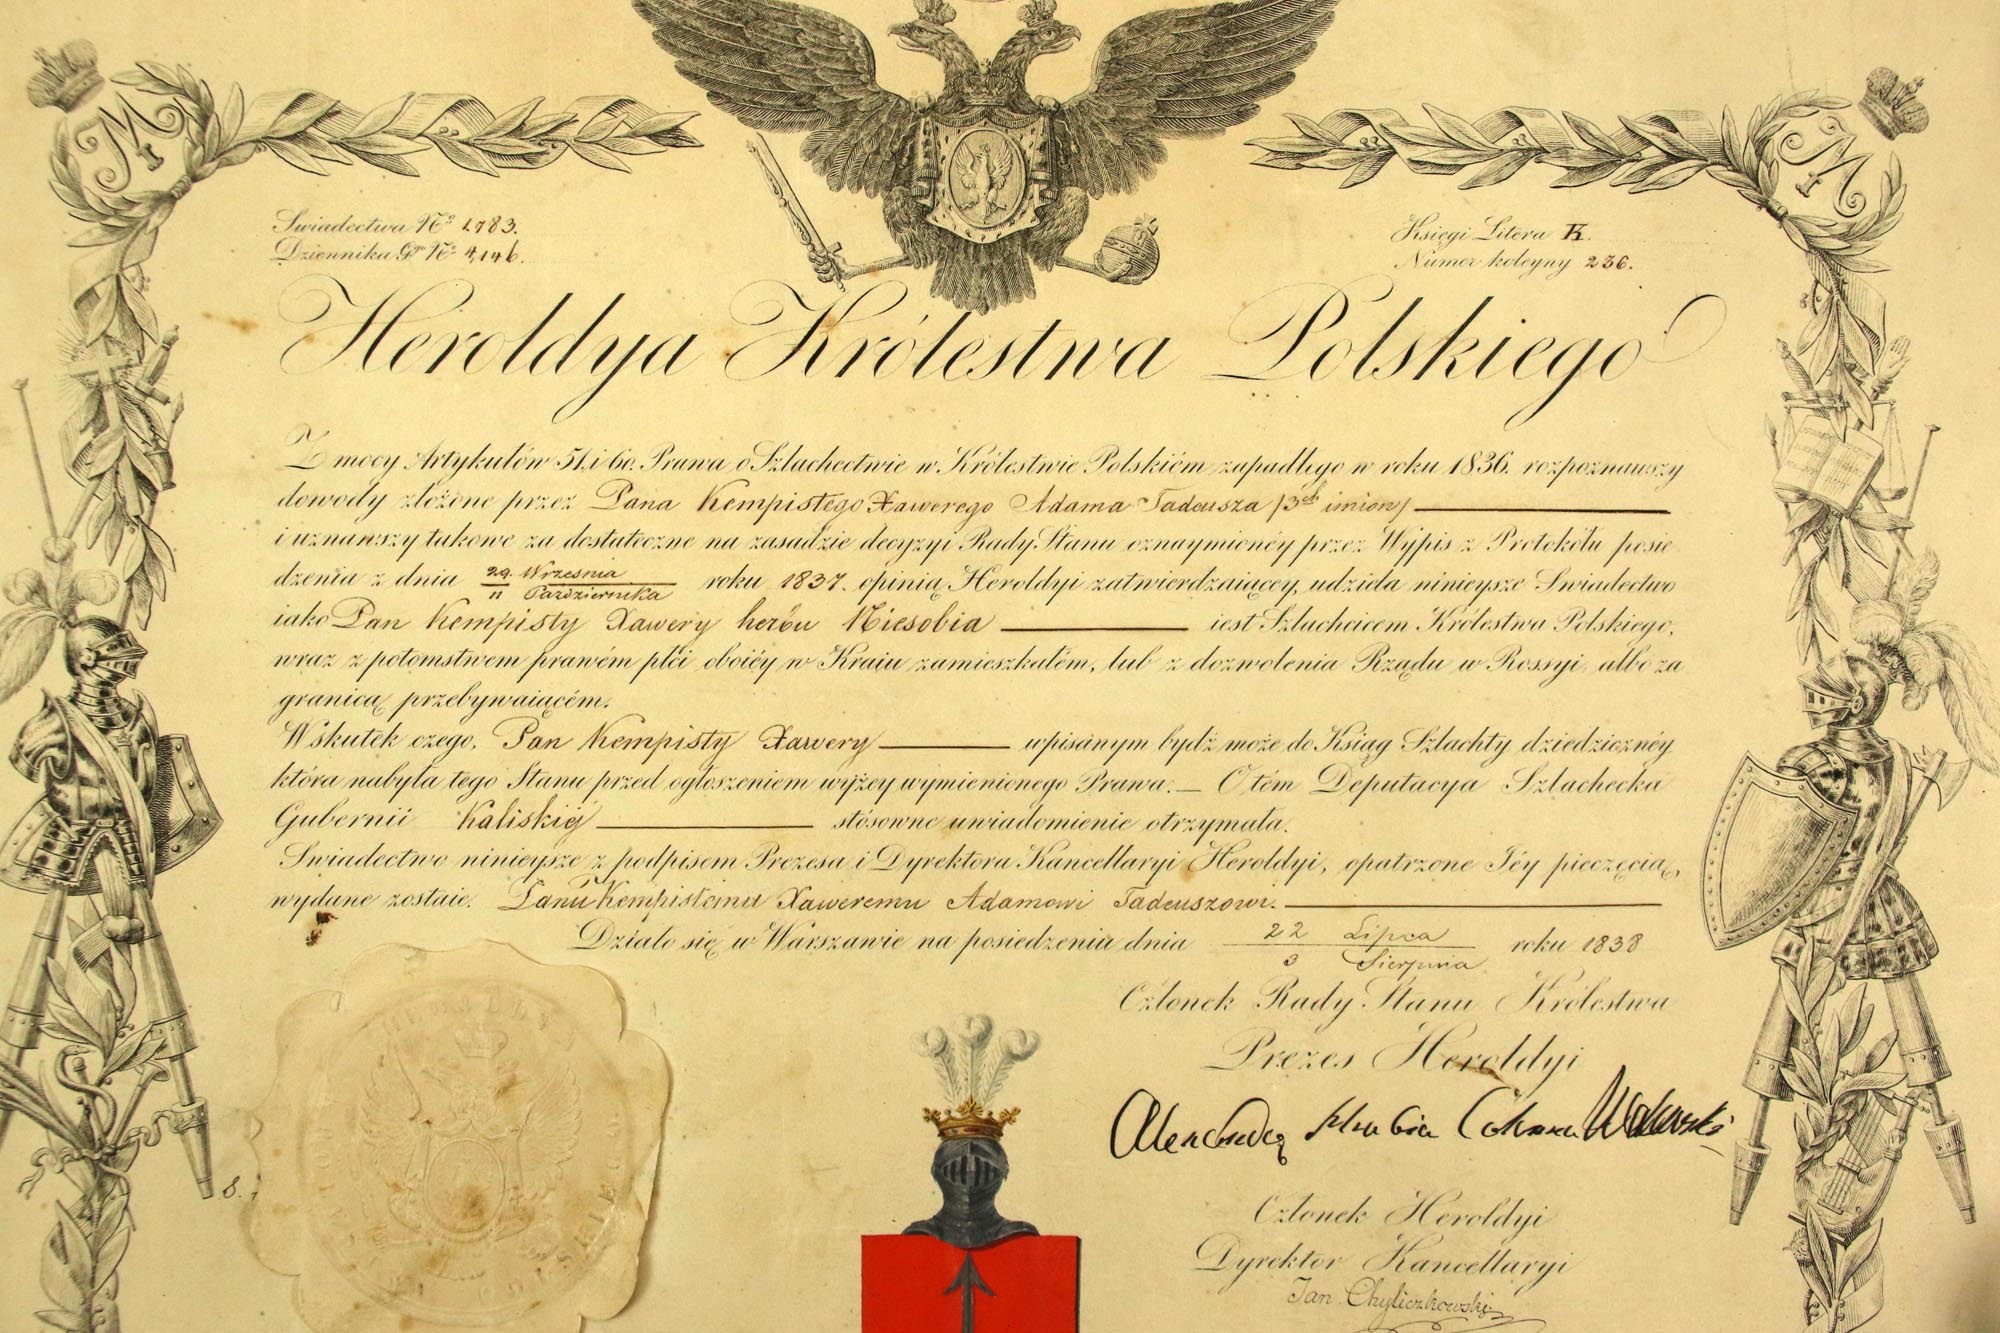 M
I
M
I
Swiadectwa No 1,783.
Dziennika Gł No 4,146.
Księgi Litera K.
Numer koleyny 236.
Heroldya Królestwa Polskiego
Z mocy Artykułów 51, i 60. Prawa o Szlachectwie w Królestwie Polskiém zapadłego w roku 1836. rozpoznawszy
dowody złożone przez Pana Kempistego Xawerego Adama Tadeusza /3ch imion/
i uznawszy takowe za dostateczne na zasadzie decyzyi Rady Stanu oznaymionéy przez Wypis z Protokółu posie
dzenia z dnia 29. Września / 11 Października roku 1837. opinią Heroldyi zatwierdzaiącéy, udziela ninieysze Swiadectwo
iako Pan Kempisty Xawery herbu Niesobia iest Szlachcicem Królestwa Polskiego,
wraz z potomstwem prawém płci oboiéy w Kraiu zamieszkałém, lub z dozwolenia Rządu w Rossyi, albo za
granicą przebywaiącém.
W skutek czego, Pan Kempisty Xawery wpisanym bydź może do Ksiąg Szlachty dziedzicznéy
która nabyła tego Stanu przed ogłoszeniem wyżey wymienionego Prawa. — O tém Deputacya Szlachecka
Gubernii Kaliskiéj stósowne uwiadomienie otrzymała.
Swiadectwo ninieysze z podpisem Prezesa i Dyrektora Kancellaryi Heroldyi, opatrzone Jéy pieczęcią,
wydane zostaie. Panu Kempistemu Xaweremu Adamowi Tadeuszowi.
Działo się w Warszawie na posiedzeniu dnia 22 Lipca / 3 Sierpnia roku 1838
Członek Rady Stanu Królestwa
Prezes Heroldyi
Alexander Hrabia Colonna Walewski
Członek Heroldyi
Dyrektor Kancellaryi
Jan Chyliczkowski